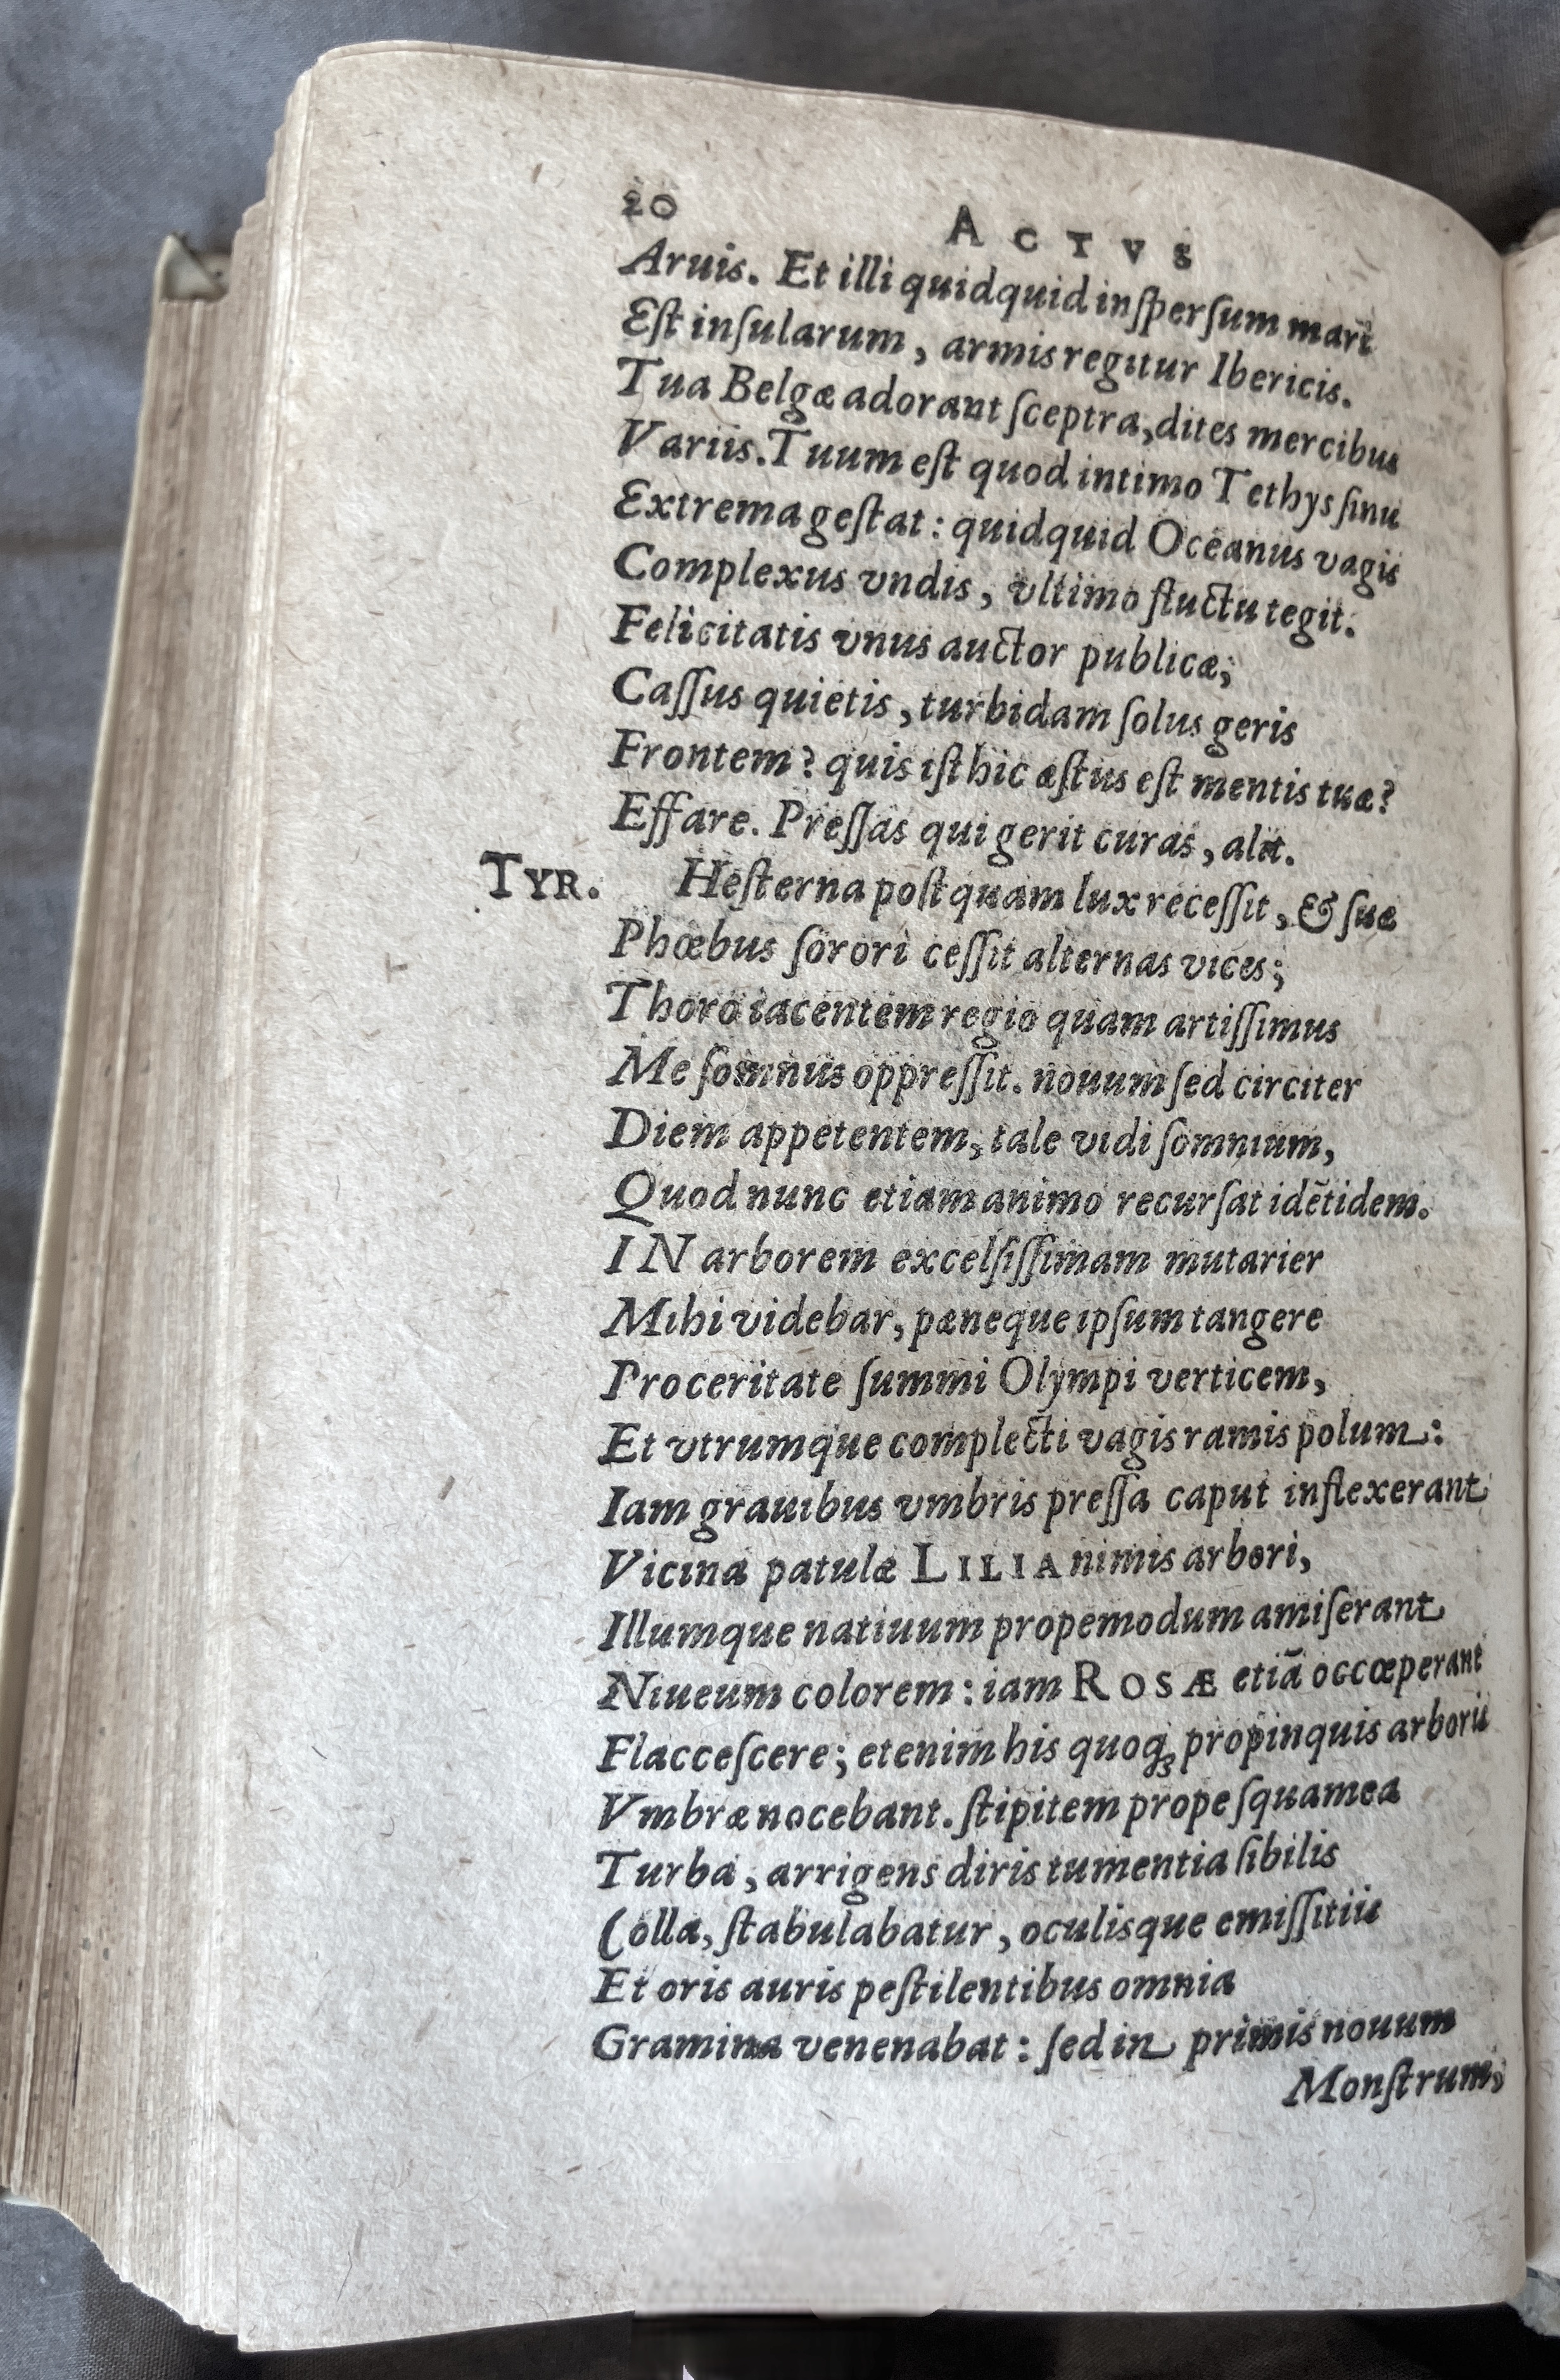 20 ACTVS
Aruis. Et illi quidquid inſperſum mari
Eſt inſularum, armis regitur Ibericis.
Tua Belgæ adorant ſceptra, dites mercibus
Variis. Tuum eſt quod intimo Tethys ſinu
Extrema geſtat: quidquid Oceanus vagis
Complexus vndis, vltimo fluctu tegit.
Felicitatis vnus auctor publicæ;
Caſſus quietis, turbidam ſolus geris
Frontem? quis iſthic æſtus eſt mentis tuæ?
Effare. Preſſas qui gerit curas, alit.
TYR. Heſterna poſtquam lux receſſit, & ſuæ
Phœbus ſorori ceſſit alternas vices;
Thoro iacentem regio quam artiſſimus
Me ſomnus oppreſſit. nouum ſed circiter
Diem appetentem, tale vidi ſomnium,
Quod nunc etiam animo recurſat idētidem.
IN arborem excelſiſſimam mutarier
Mihi videbar, pæneque ipſum tangere
Proceritate ſummi Olympi verticem,
Et vtrumque complecti vagis ramis polum:
Iam grauibus vmbris preſſa caput inflexerant
Vicina patulæ LILIA nimis arbori,
Illumque natiuum propemodum amiſerant
Niueum colorem: iam ROSÆ etiā occœperant
Flacceſcere; etenim his quoqꝫ propinquis arboris
Vmbræ nocebant. ſtipitem prope ſquamea
Turba, arrigens diris tumentia ſibilis
Colla, ſtabulabatur, oculisque emiſſitiis
Et oris auris peſtilentibus omnia
Gramina venenabat: ſed in primis nouum
Monſtrum,